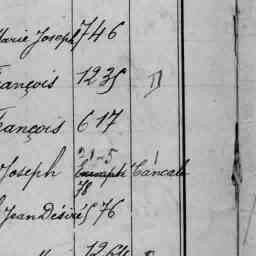 Marie Joseph 746
François 1235 D
François 617
Joseph Triumph Cancale
78
Jean Désiré 576